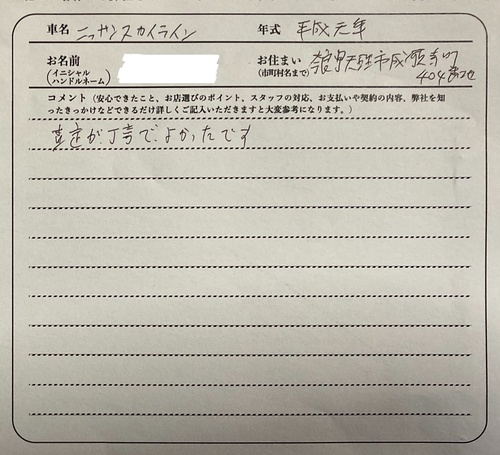 車名 ニッサンスカイライン 年式 平成元年
お名前 お住まい 奈良県天理市成願寺町
(イニシャル (市町村名まで) 404番地
ハンドルネーム)
コメント (安心できたこと、お店選びのポイント、スタッフの対応、お支払いや契約の内容、弊社を知
ったきっかけなどできるだけ詳しくご記入いただきますと大変参考になります。)
査定が丁寧でよかったです